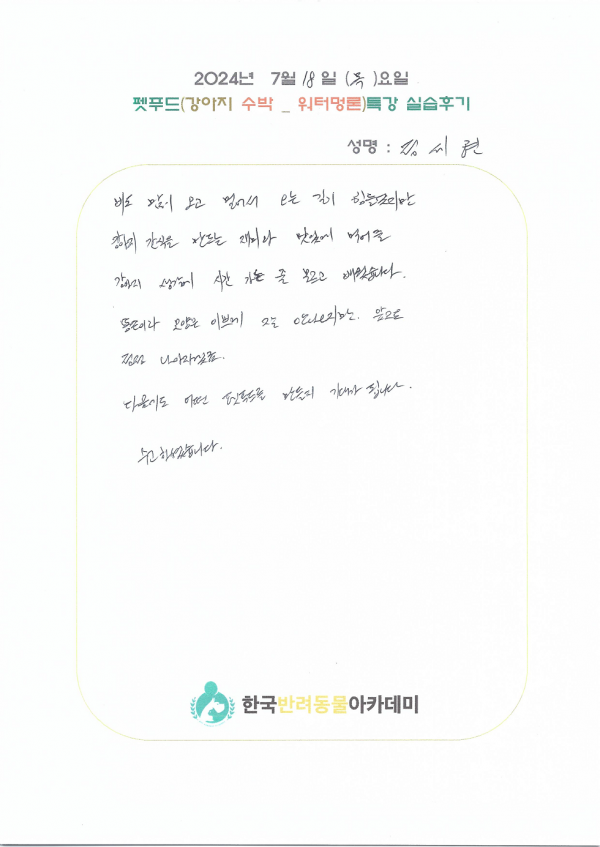 2024년 7월 18일 (목)요일
펫푸드(강아지 수박 _ 워터멍론)특강 실습후기
성명 : 김 씨 련
비도 많이 오고 멀어서 오는 길이 힘들었지만
강아지 간식을 만드는 재미와 맛있게 먹어줄
강아지 생각에 시간 가는 줄 모르고 배웠습니다.
똥손이라 모양은 이쁘게 잘 안나오지만. 앞으로
점점 나아지겠죠.
다음에도 어떤 펫푸드를 만들지 기대가 됩니다.
수고하셨습니다.
한국반려동물아카데미